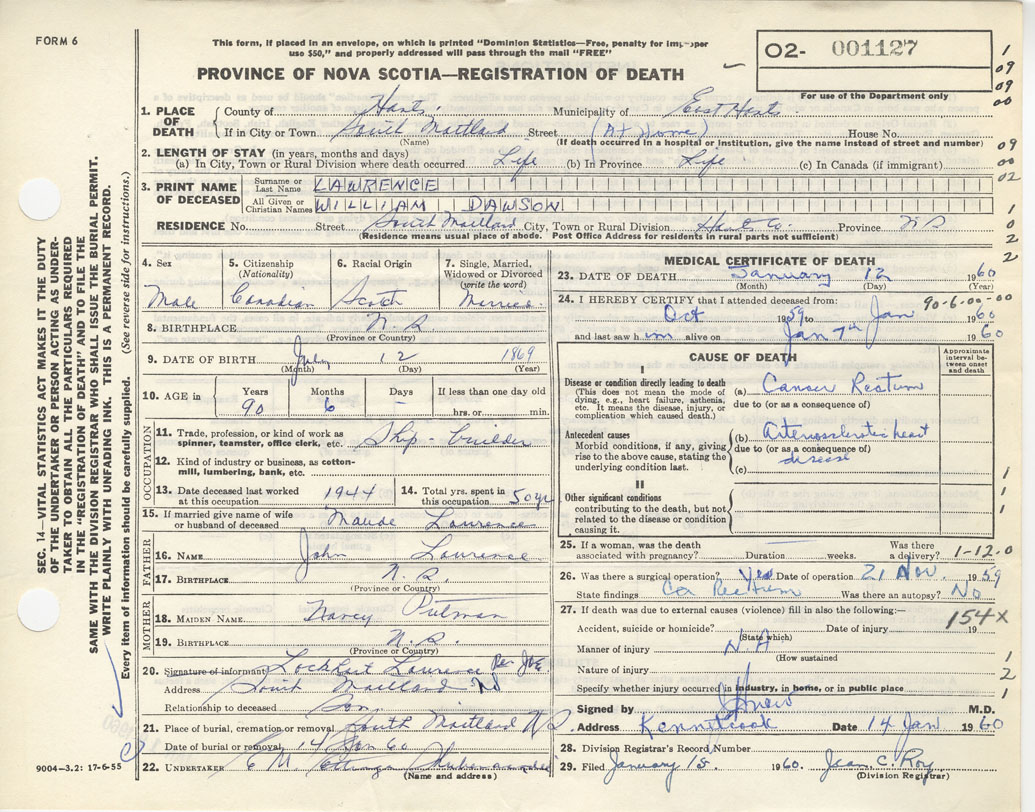 FORM 6
This form, if placed in an envelope, on which is printed "Dominion Statistics—Free, penalty for improper
use $50," and properly addressed will pass through the mail "FREE"
O2- 001127
For use of the Department only
PROVINCE OF NOVA SCOTIA—REGISTRATION OF DEATH
1. PLACE OF DEATH County of Hants Municipality of East Hants
If in City or Town South Maitland Street (At Home) House No.
(Name) (If death occurred in a hospital or institution, give the name instead of street and number)
2. LENGTH OF STAY (in years, months and days)
(a) In City, Town or Rural Division where death occurred Life (b) In Province Life (c) In Canada (if immigrant)
3. PRINT NAME OF DECEASED Surname or Last Name LAWRENCE
All Given or Christian Names WILLIAM DAWSON
RESIDENCE No. Street South Maitland City, Town or Rural Division Hants Co. Province NS
(Residence means usual place of abode. Post Office Address for residents in rural parts not sufficient)
4. Sex Male
5. Citizenship (Nationality) Canadian
6. Racial Origin Scotch
7. Single, Married, Widowed or Divorced (write the word) Married
8. BIRTHPLACE N.S.
(Province or Country)
9. DATE OF BIRTH July 12 1869
(Month) (Day) (Year)
10. AGE in Years 90 Months 6 Days - If less than one day old hrs. or min.
OCCUPATION
11. Trade, profession, or kind of work as spinner, teamster, office clerk, etc. Ship-builder
12. Kind of industry or business, as cotton-mill, lumbering, bank, etc.
13. Date deceased last worked at this occupation 1944
14. Total yrs. spent in this occupation 50 yrs
15. If married give name of wife or husband of deceased Maude Lawrence
FATHER
16. NAME John Lawrence
17. BIRTHPLACE N.S.
(Province or Country)
MOTHER
18. MAIDEN NAME Nancy Putman
19. BIRTHPLACE N.S.
(Province or Country)
20. Signature of informant Lockhart Lawrence Per
Address South Maitland NS
Relationship to deceased Son
21. Place of burial, cremation or removal South Maitland NS
Date of burial or removal 14 Jan 60
22. UNDERTAKER C M
(Name and address)
9004-3.2: 17-6-55
MEDICAL CERTIFICATE OF DEATH
23. DATE OF DEATH January 12 1960
(Month) (Day) (Year)
24. I HEREBY CERTIFY that I attended deceased from: 90-6-00-00
Oct 1959 to Jan 1960
and last saw him alive on Jan 7th 1960
CAUSE OF DEATH
Approximate interval between onset and death
I
Disease or condition directly leading to death
(This does not mean the mode of dying, e.g., heart failure, asthenia, etc. It means the disease, injury, or complication which caused death.)
(a) Cancer Rectum
due to (or as a consequence of)
Antecedent causes
Morbid conditions, if any, giving rise to the above cause, stating the underlying condition last.
(b) Arteriosclerotic heart
due to (or as a consequence of)
disease
(c)
II
Other significant conditions contributing to the death, but not related to the disease or condition causing it.
25. If a woman, was the death associated with pregnancy? Duration weeks. Was there a delivery? 1-12-0
26. Was there a surgical operation? Yes Date of operation 21 Nov. 1959
State findings Ca Rectum Was there an autopsy? No
27. If death was due to external causes (violence) fill in also the following:—
154X
Accident, suicide or homicide? Date of injury 19
(State which)
Manner of injury N.A
(How sustained
Nature of injury
Specify whether injury occurred in industry, in home, or in public place
Signed by M.D.
Address Kennetcook Date 14 Jan 1960
28. Division Registrar's Record Number
29. Filed January 15 1960. Jean C. Roy
(Division Registrar)
SEC. 14—VITAL STATISTICS ACT MAKES IT THE DUTY
OF THE UNDERTAKER OR PERSON ACTING AS UNDER-
TAKER TO OBTAIN ALL THE PARTICULARS REQUIRED
IN THE "REGISTRATION OF DEATH" AND TO FILE THE
SAME WITH THE DIVISION REGISTRAR WHO SHALL ISSUE THE BURIAL PERMIT.
WRITE PLAINLY WITH UNFADING INK. THIS IS A PERMANENT RECORD.
Every item of information should be carefully supplied. (See reverse side for instructions.)
1
09
09
00
09
00
02
1
0
2
2
1
1
1
1
2
1